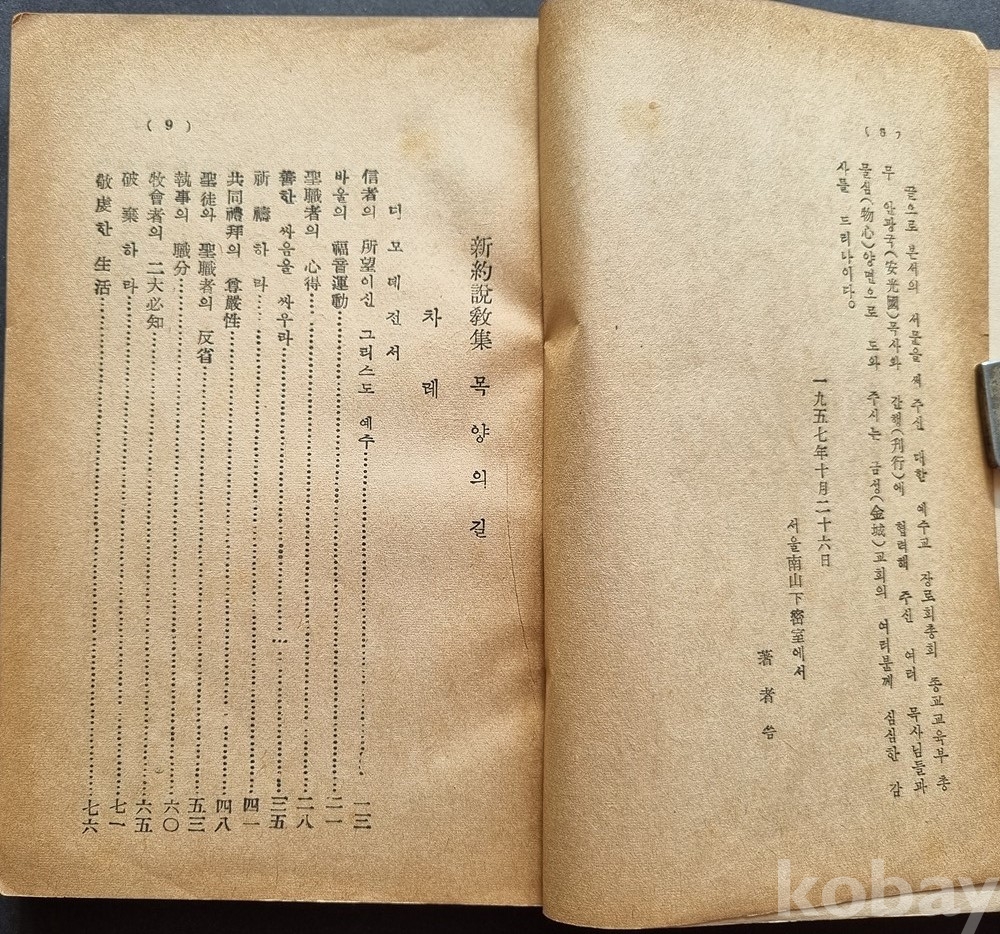 ( 8 )
끝으로 본서의 서문을 써 주신 대한 예수교 장로회총회 종교교육부 총
무 안광국(安光國)목사와 간행(刊行)에 협력해 주신 여러 목사님들과
물심(物心)양면으로 도와 주시는 금성(金城)교회의 여러분께 심심한 감
사를 드리나이다。
一九五七年十月二十六日
서울南山下密室에서
著者 씀
( 9 )
新約說敎集 목양의길
차례
디모데전서
信者의 所望이신 그리스도 예수 一三
바울의 福音運動 二一
聖職者의 心得 二八
善한 싸움을 싸우라 三五
祈禱하라 四一
共同禮拜의 尊嚴性 四八
聖徒와 聖職者의 反省 五三
執事의 職分 六〇
牧會者의 二大必知 六五
破棄하라 七一
敬虔한 生活 七六
kobay